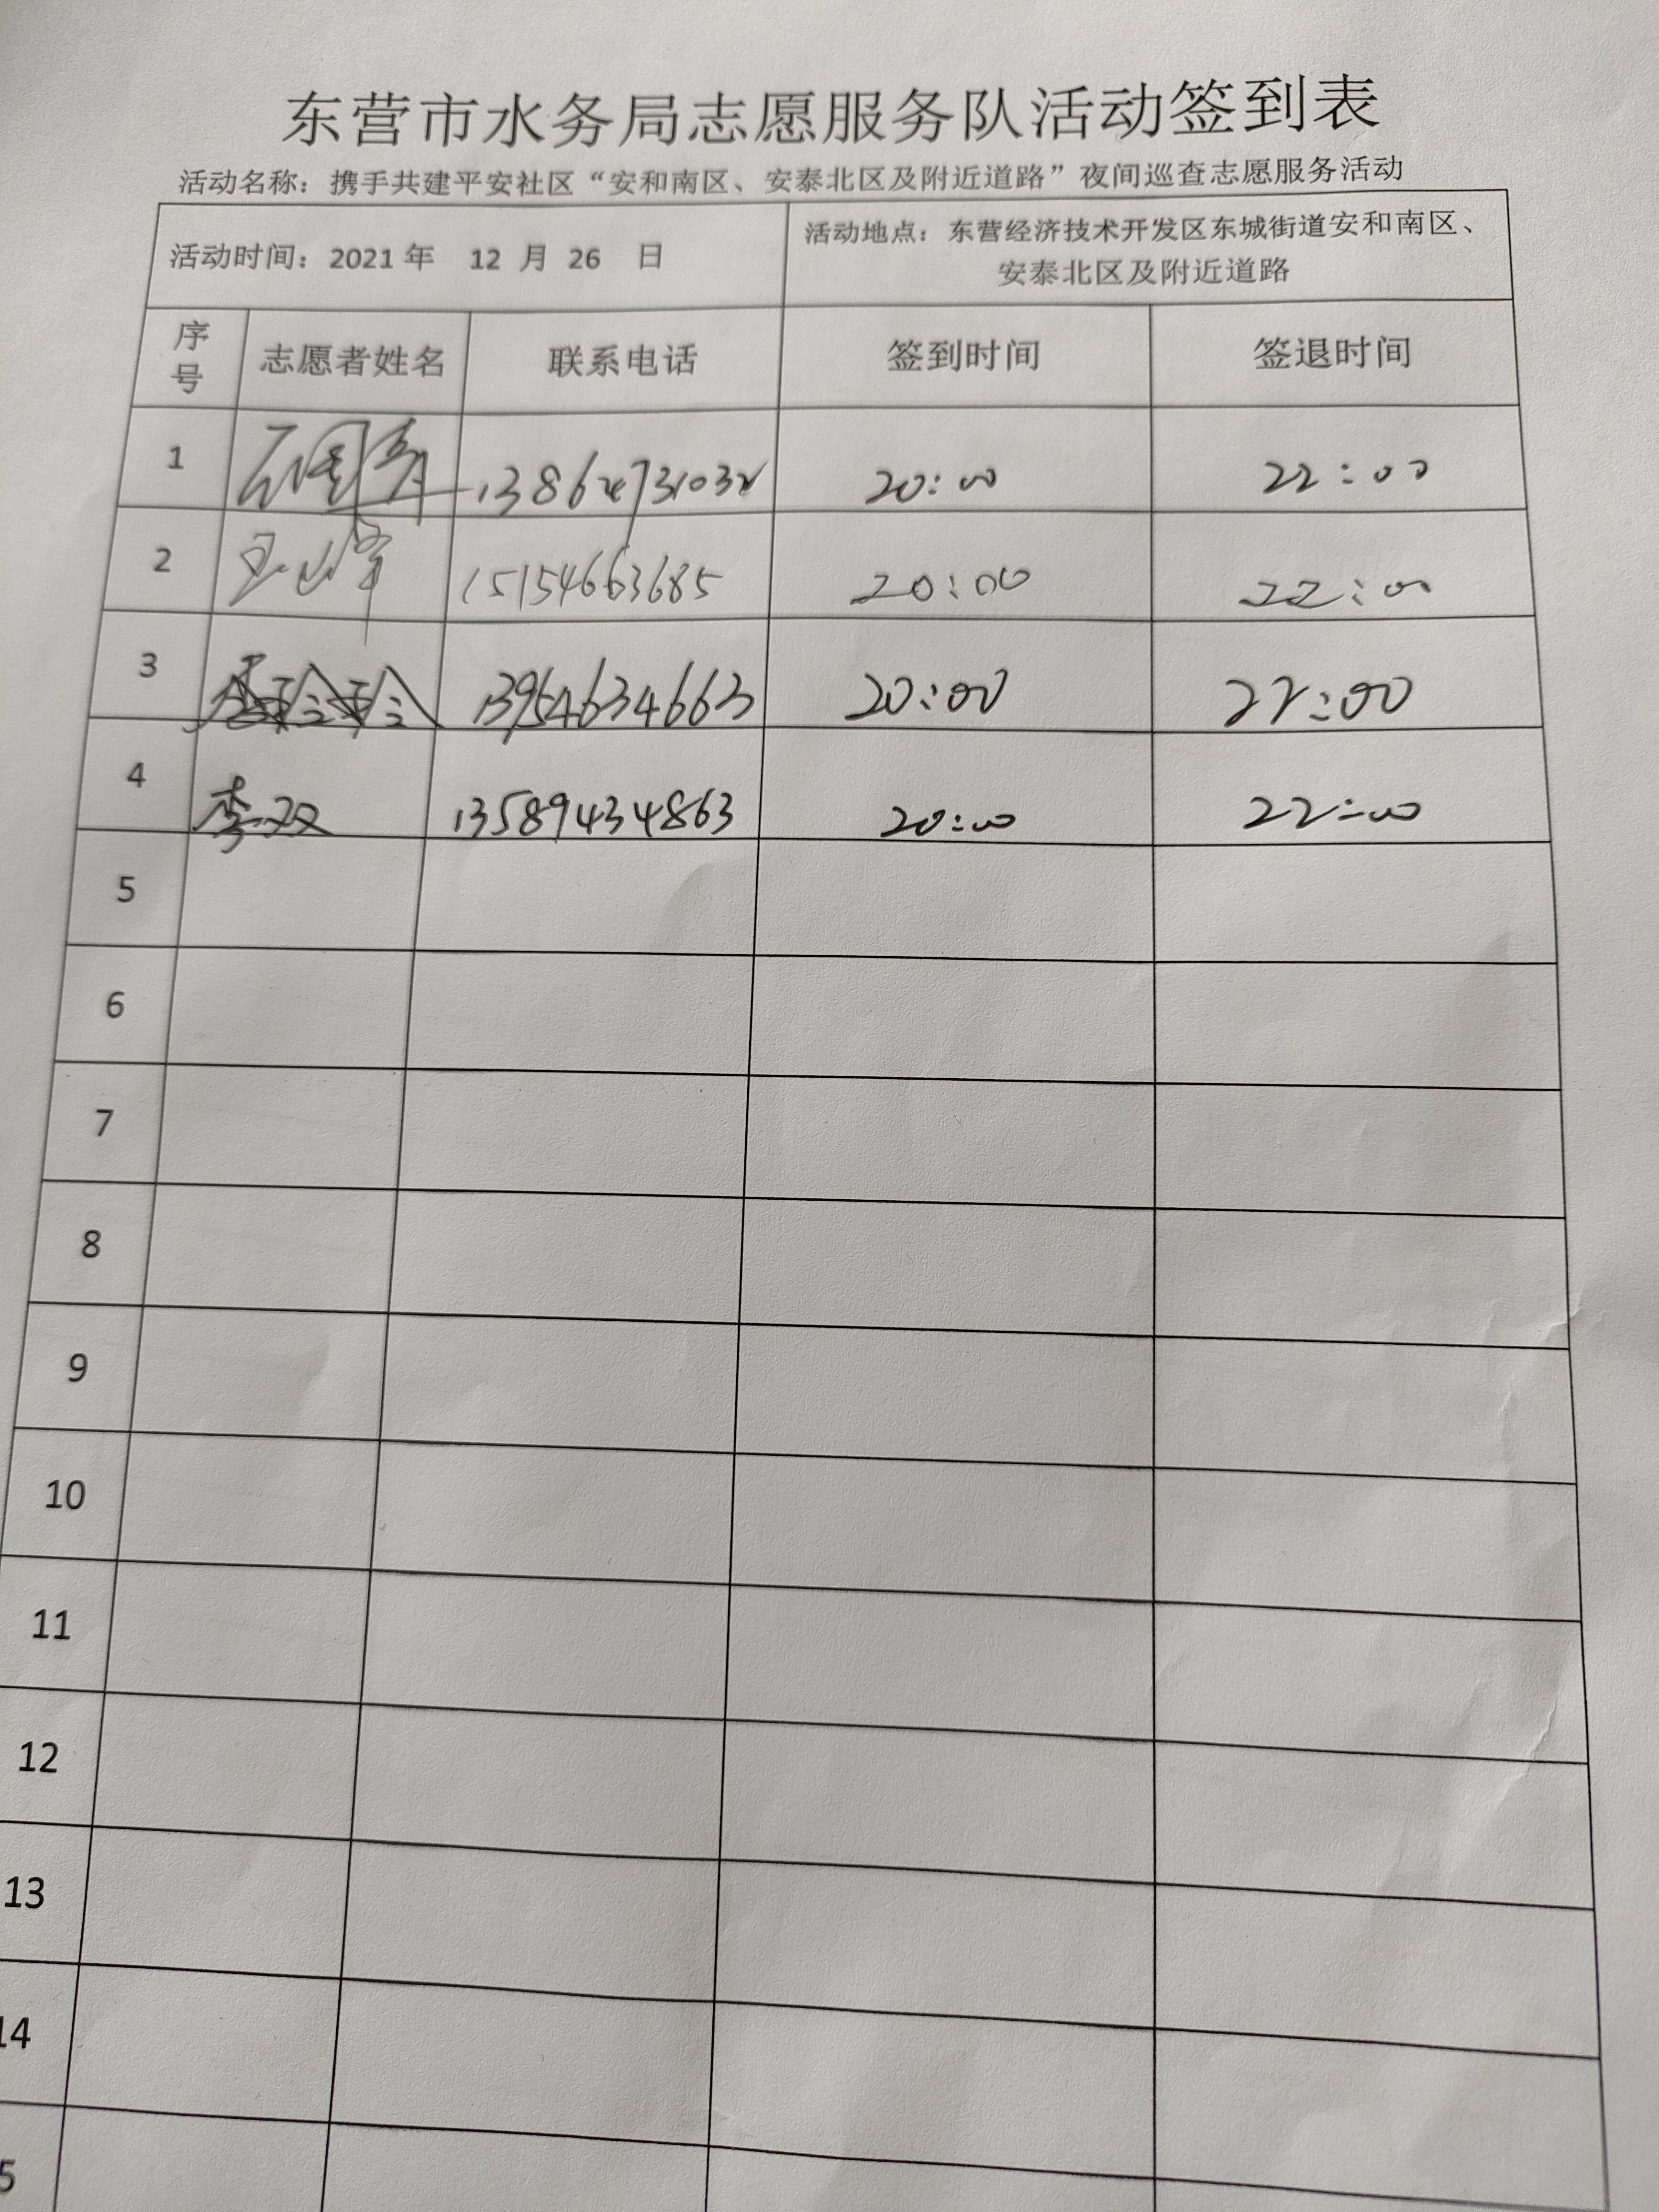 东营市水务局志愿服务队活动签到表
活动名称：携手共建平安社区“安和南区、安泰北区及附近道路”夜间巡查志愿服务活动
活动时间：2021 年 12 月 26 日
活动地点：东营经济技术开发区东城街道安和南区、
安泰北区及附近道路
序号 志愿者姓名 联系电话 签到时间 签退时间
1 20:00 22:00
2 15154663685 20:00 22:00
3 13954634663 20:00 22:00
4 李双 13589434863 20:00 22:00
5
6
7
8
9
10
11
12
13
14
5